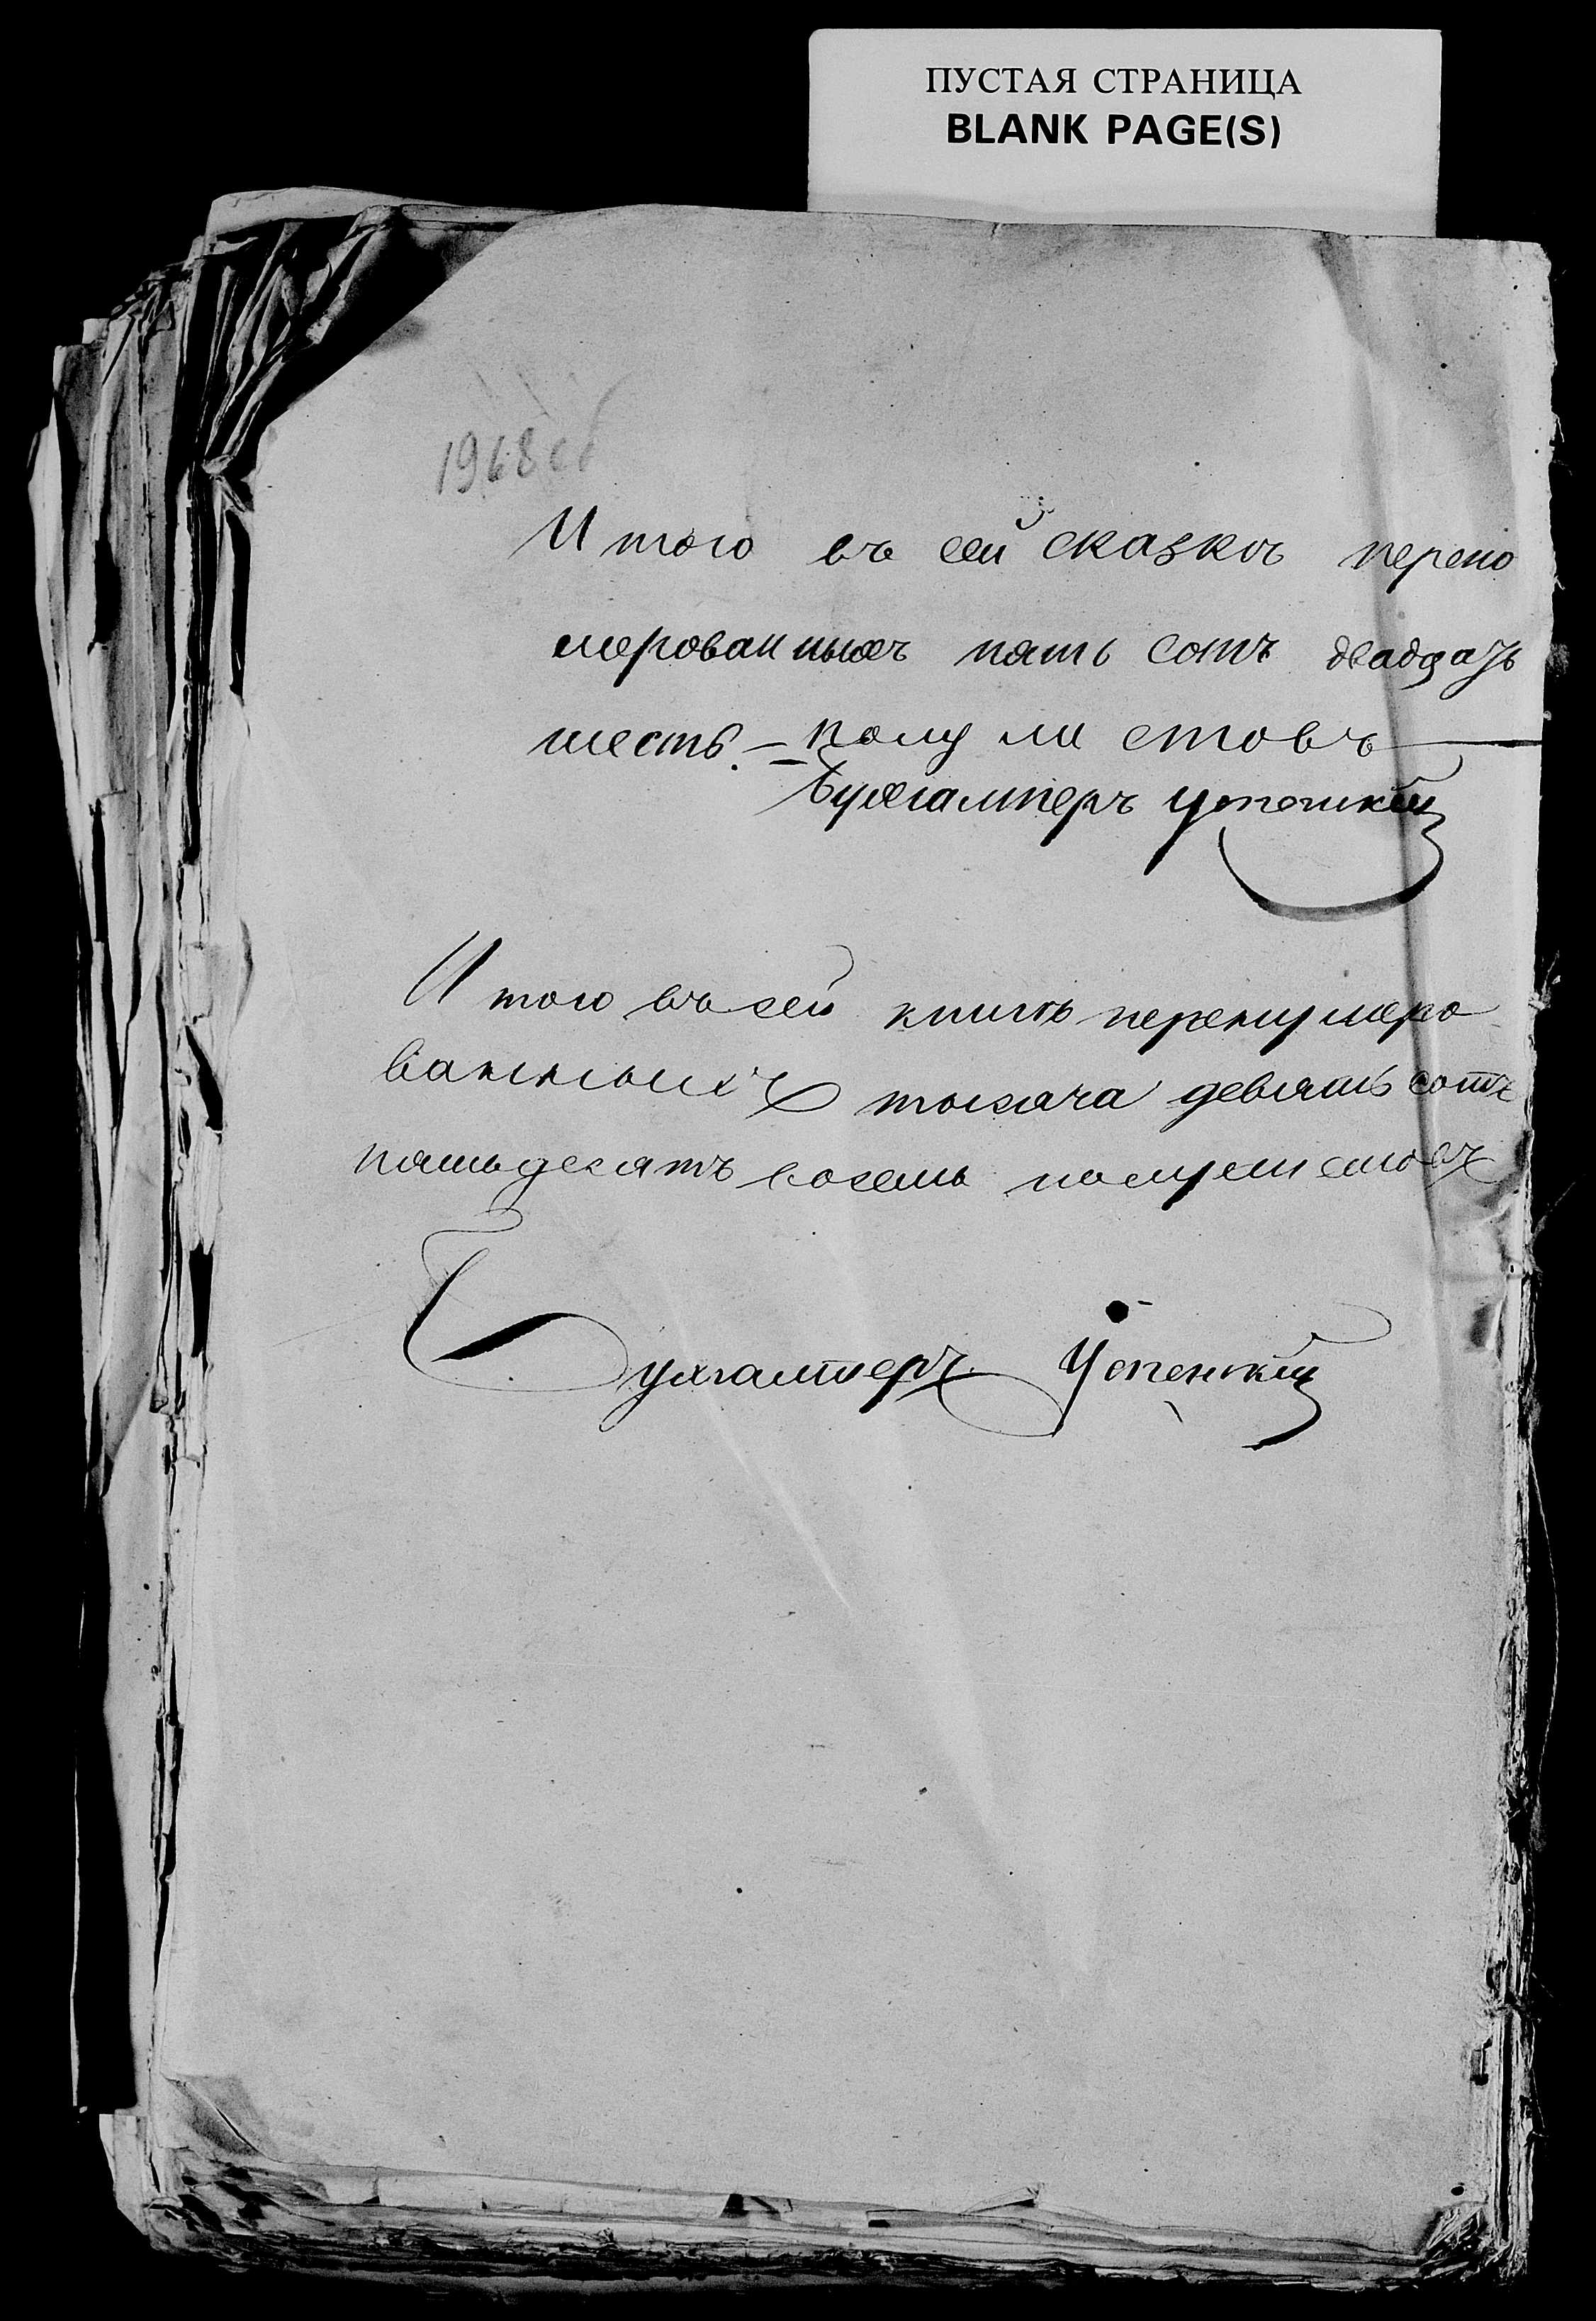 ПУСТАЯ СТРАНИЦА
BLANK PAGE(S)
1968 об
Итого въ сей сказкѣ перено
мерованныхъ пять сотъ двадцать
шесть. – полу листовъ
Бухгалтеръ Успенскій
Итого въ сей книгѣ перенумеро
ванныхъ тысяча девять сотъ
пятьдесятъ восемь полулистовъ
Бухгалтеръ Успенскій